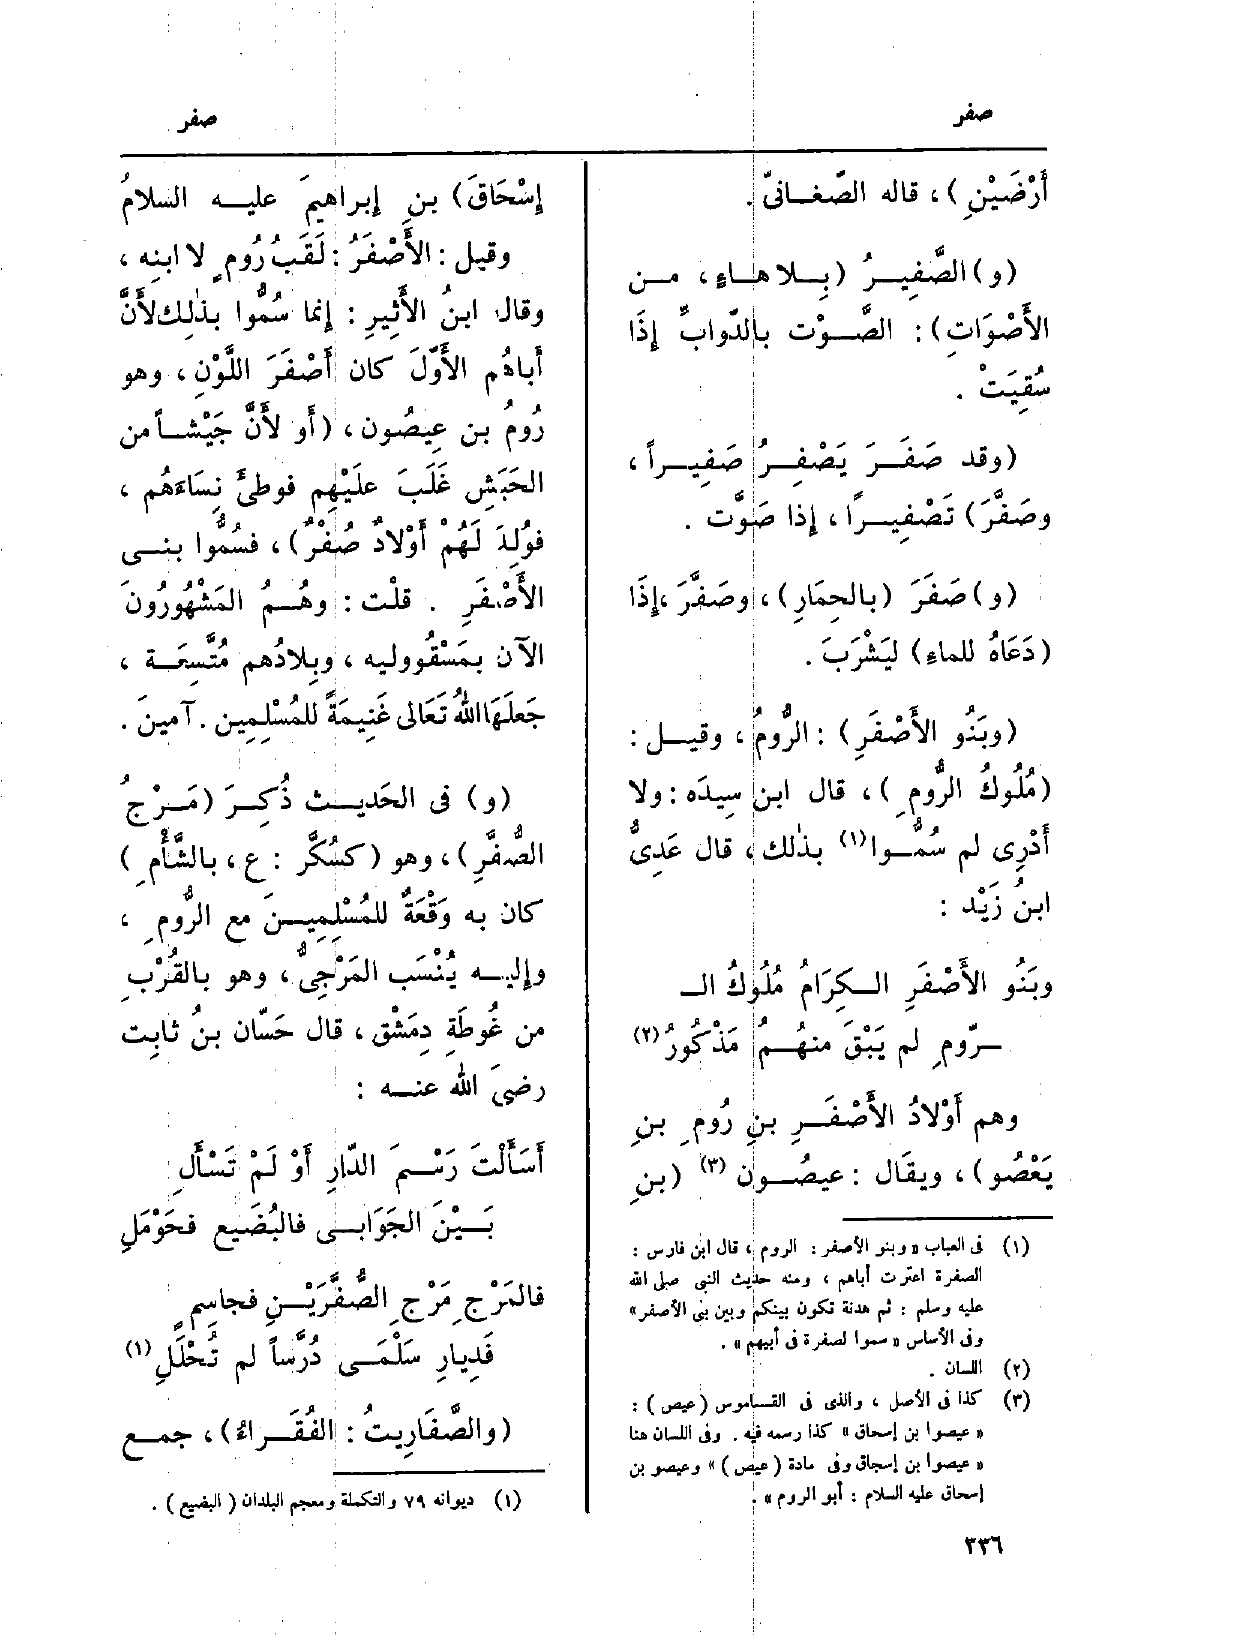 صفر
صفر
أَرْضَيْنِ)، قاله الصّغانىّ .
(و) الصَّفِيرُ (بِلاهاءٍ، من
الأَصْوَاتِ): الصَّوْت بالدّوابّ إِذَا
سُقِيَتْ .
(وقد صَفَرَ يَصْفِرُ صَفِيراً،
وصَفَّرَ) تَصْفِيراً، إذا صَوَّت .
(و) صَفَرَ (بالحِمَارِ)، وصَفَّرَ، إِذَا
(دَعَاهُ للماءِ) لِيَشْرَبَ.
(وبَنُو الأَصْفَرِ) : الرُّومُ، وقيل :
(مُلُوكُ الرُّومِ)، قال ابن سِيدَه : ولا
أَدْرِى لم سُمُّوا(١) بذٰلك، قال عَدِىُّ
ابنُ زَيْد :
وبَنُو الأَصْفَرِ الكِرَامُ مُلُوكُ الـ
ـرّومِ لم يَبْقَ منهُمُ مَذْكُورُ(٢)
وهم أَوْلادُ الأَصْفَرِ بنِ رُومِ بنِ
يَعْصُو)، ويقَال : عيصُون (٣) (بنِ
(١) فى العباب « وبنو الأصفر : الروم، قال ابن فارس :
الصفرة اعترت أباهم، ومنه حديث النبى صلى الله
عليه وسلم : ثم هدنة تكون بينكم وبين بنى الأصفر»
وفى الأساس « سموا لصفرة فى أبيهم » .
(٢) اللسان .
(٣) كذا فى الأصل، والذى فى القاموس (عيص) :
« عيصوا بن إسحاق » كذا رسمه فيه . وفى اللسان هنا
« عيصوا بن إسحاق وفى مادة (عيص) » وعيصو بن
إسحاق عليه السلام : أبو الروم » .
إِسْحَاقَ) بنِ إبراهيمَ عليه السلامُ
وقيل : الأَصْفَرُ : لَقَبُ رُومٍ لا ابنِه،
وقال ابنُ الأَثِيرِ : إنما سُمُّوا بذٰلِك لأَنَّ
أَباهُم الأَوّلَ كان أَصْفَرَ اللَّوْنِ، وهو
رُومُ بن عِيصُون، (أَو لأَنَّ جَيْشاً من
الحَبَشِ غَلَبَ علَيْهِم فوطِئَ نِساءَهُم،
فوُلِدَ لَهُمْ أَوْلادٌ صُفْرٌ)، فسُمُّوا بنى
الأَصْفَرِ . قلْت : وهُمُ المَشْهُورُونَ
الآن بمَسْقُووليه، وبِلادُهم مُتَّسِعَة،
جعلَهَا اللهُ تَعَالى غَنِيمَةً للمُسْلِمِين . آمينَ .
(و) فى الحَدِيث ذُكِرَ (مَرْجُ
الصُّفَّرِ)، وهو (كسُكَّر : ع، بالشَّأْمِ)
كان به وَقْعَةٌ للمُسْلِمِينَ مع الرُّومِ،
وإليه يُنْسَب المَرْجِىُّ، وهو بالقُرْبِ
من غُوطَةِ دِمَشْق، قال حَسَّان بنُ ثابِت
رضىَ الله عنه :
أَسَأَلْتَ رَسْمَ الدّارِ أَوْ لَمْ تَسْأَلِ
بَيْنَ الجَوَابى فالبُضَيع فحَوْمَلِ
فالمَرْجِ مَرْجِ الصُّفَّرَيْنِ فجاسِمٍ
فَدِيارِ سَلْمَى دُرَّساً لم تُحْلَلِ(١)
(والصَّفَارِيتُ : الفُقَرَاءُ)، جمع
(١) ديوانه ٧٩ والتكملة ومعجم البلدان (البضيع) .
٣٣٦